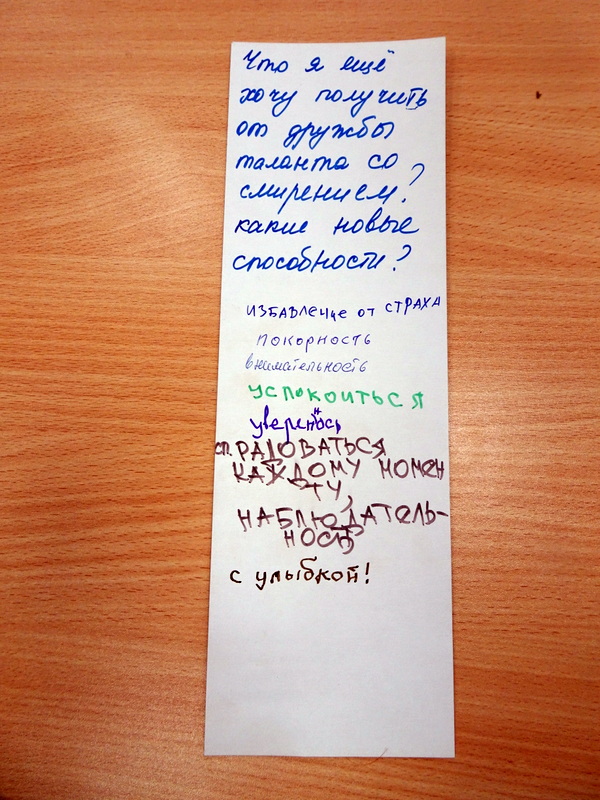 Что я ещё
хочу получить
от дружбы
таланта со
смирением?
какие новые
способности?
избавление от страха
покорность
внимательность
успокоиться
уверенность
сп. РАДОВАТЬСЯ
КАЖДОМУ МОМЕН
ТУ,
НАБЛЮДАТЕЛЬ-
НОСТЬ
с улыбкой!